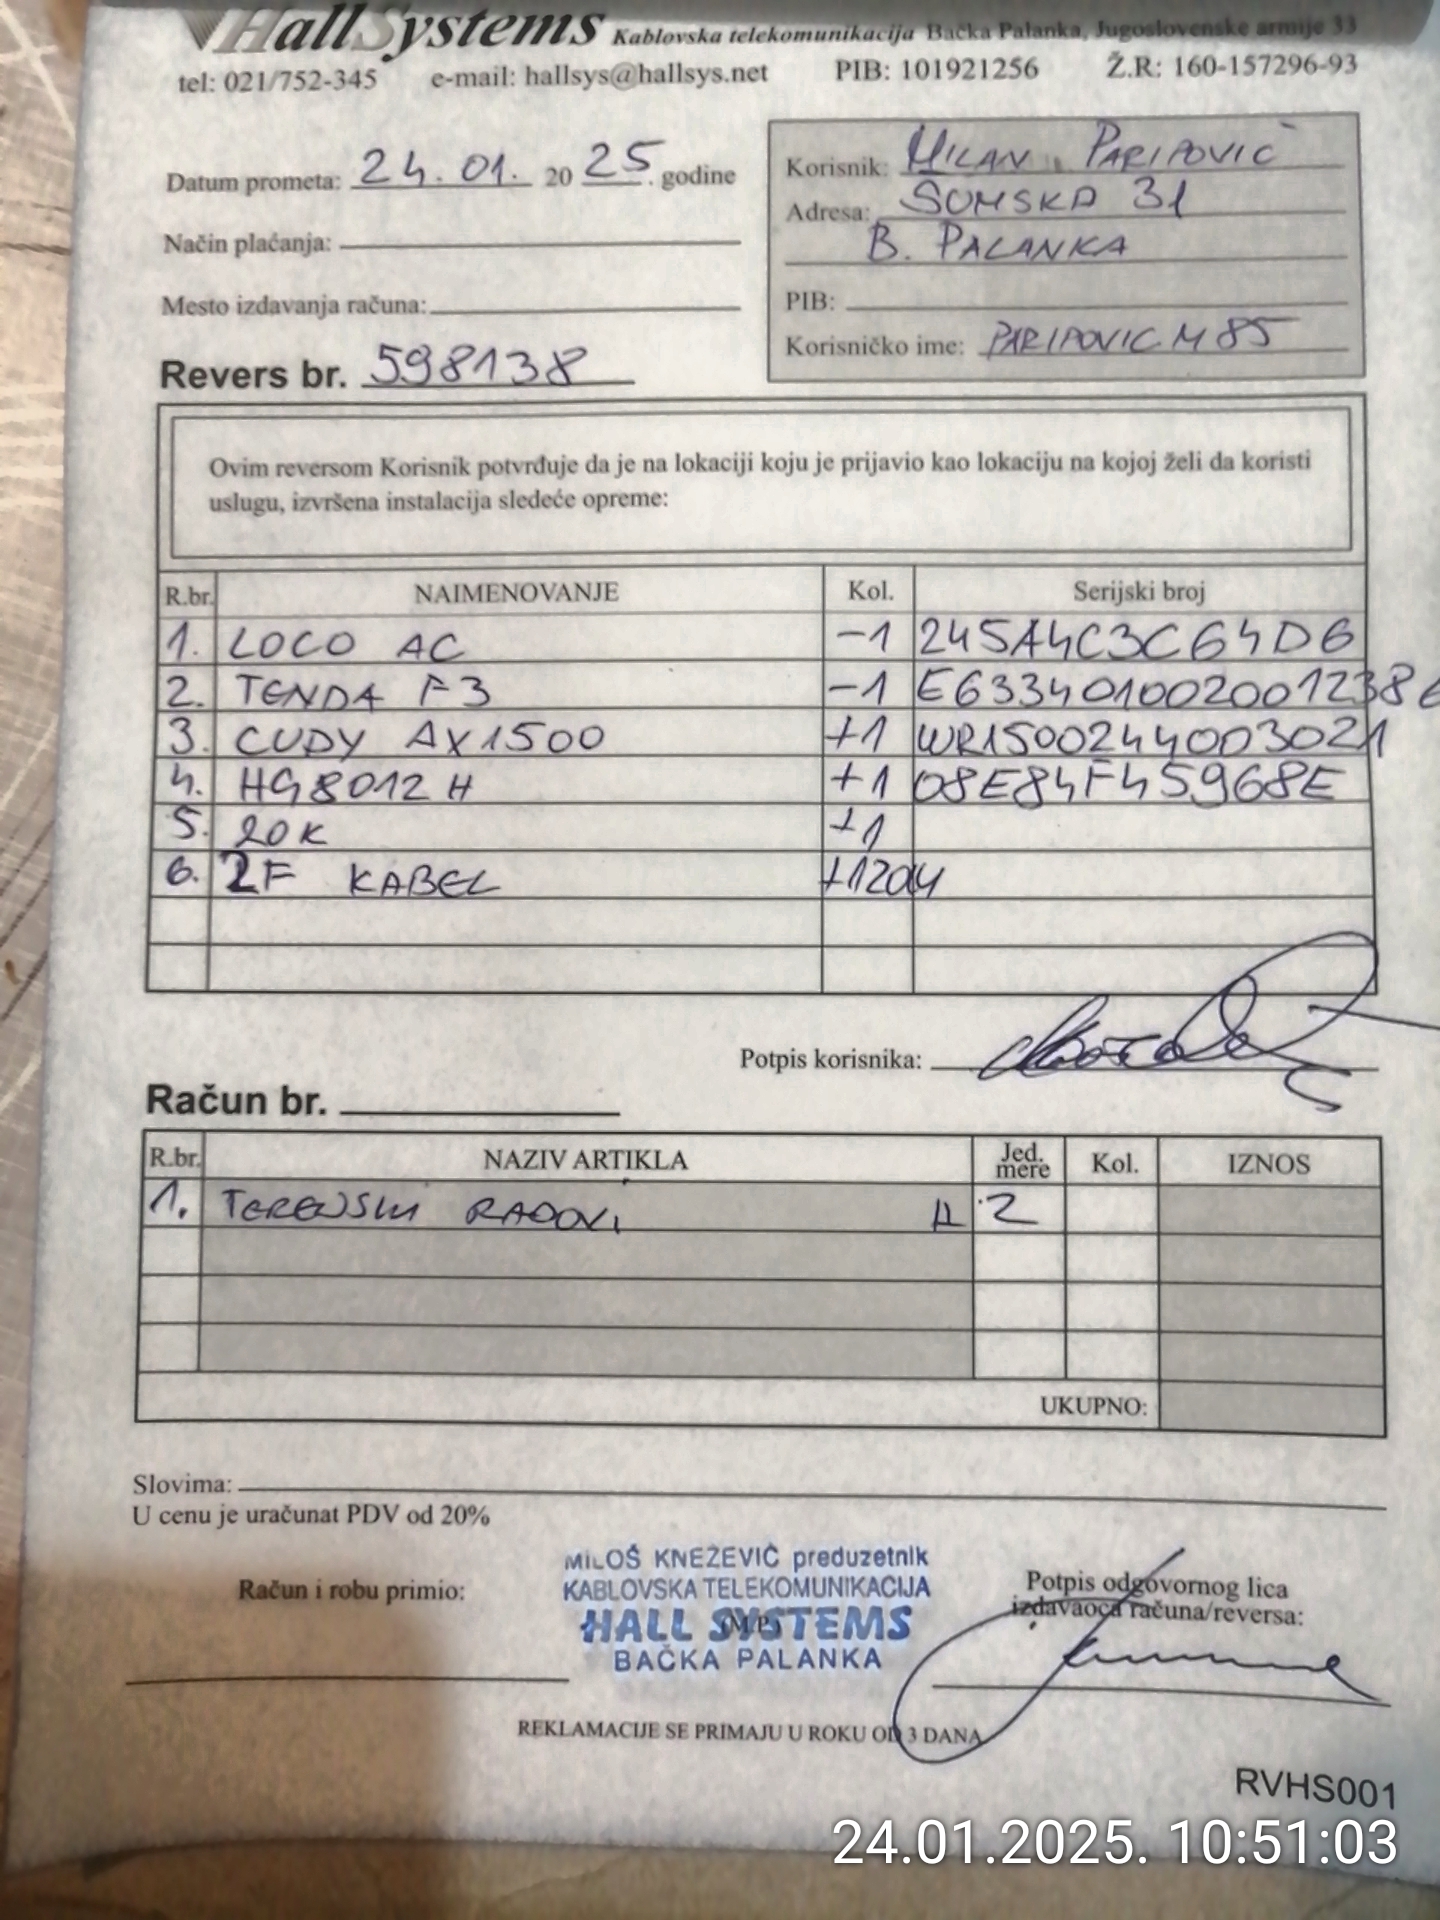 HallSystems Kablovska telekomunikacija Bačka Palanka, Jugoslovenske armije 33
tel: 021/752-345 e-mail: hallsys@hallsys.net PIB: 101921256 Ž.R: 160-157296-93
Datum prometa: 24.01. 2025. godine
Način plaćanja:
Mesto izdavanja računa:
Revers br. 598138
Korisnik: MILAN PARIPOVIĆ
Adresa: SUMSKA 31
B. PALANKA
PIB:
Korisničko ime: PARIPOVICM85
Ovim reversom Korisnik potvrđuje da je na lokaciji koju je prijavio kao lokaciju na kojoj želi da koristi
uslugu, izvršena instalacija sledeće opreme:
R.br. NAIMENOVANJE Kol. Serijski broj
1. LOCO AC -1 245A4C3C64D6
2. TENDA F3 -1
3. CUDY AX1500 +1 WR1500244003021
4. HG8012H +1 08E84F45968E
5. ZOK +1
6. 2F KABEL +120M
Potpis korisnika:
Račun br.
R.br. NAZIV ARTIKLA Jed. mere Kol. IZNOS
1. TERENSKI RADOVI H 2
UKUPNO:
Slovima:
U cenu je uračunat PDV od 20%
Račun i robu primio:
MILOŠ KNEŽEVIĆ preduzetnik
KABLOVSKA TELEKOMUNIKACIJA
HALL SYSTEMS
(M.P.)
BAČKA PALANKA
Potpis odgovornog lica
izdavaoca računa/reversa:
REKLAMACIJE SE PRIMAJU U ROKU OD 3 DANA
RVHS001
24.01.2025. 10:51:03